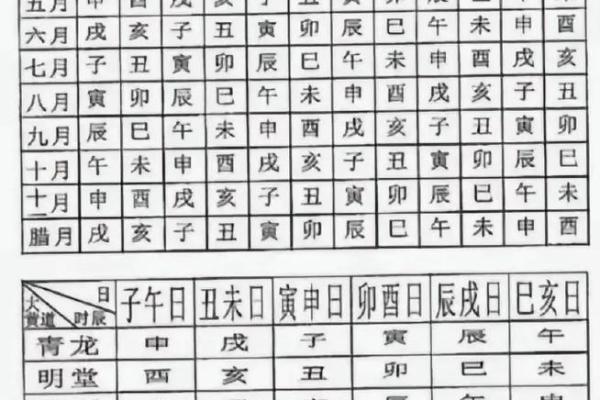 五月 申 酉 戌 亥 子 丑 寅 卯 辰 巳 午 未
六月 戌 亥 子 丑 寅 卯 辰 巳 午 未 申 酉
七月 子 丑 寅 卯 辰 巳 午 未 申 酉 戌 亥
八月 寅 卯 辰 巳 午 未 申 酉 戌 亥 子 丑
九月 辰 巳 午 未 申 酉 戌 亥 子 丑 寅 卯
十月 午 未 申 酉 戌 亥 子 丑 寅 卯 辰 巳
十一月 申 酉 戌 亥 子 丑 寅 卯 辰 巳 午 未
腊月 戌 亥 子 丑 寅 卯 辰 巳 午 未 申 酉
大黄道 时辰 日 子午日 丑未日 寅申日 卯酉日 辰戌日 巳亥日
青龙 申 戌 子 寅 辰 午
明堂 酉 亥 丑 卯 巳 未